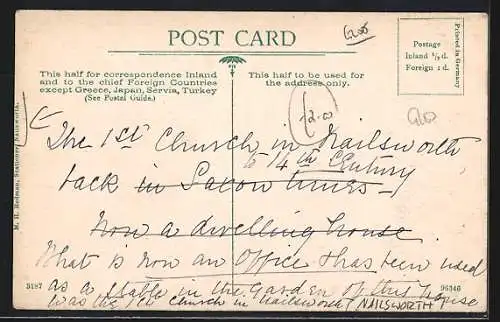 G.00
POST CARD
This half for correspondence Inland
and to the chief Foreign Countries
except Greece, Japan, Servia, Turkey
(See Postal Guide.)
This half to be used for
the address only.
Postage
Inland ½ d.
Foreign 1 d.
Printed in Germany
12.00
The 1st Church in Nailsworth
to 14th Century
back in Saxon times
Now a dwelling house.
What is now an Office & has been used
as a stable in the Garden of this house
was the 1st Church in Nailsworth (NAILSWORTH)
M. H. Redman, Stationer, Nailsworth.
5187
96346